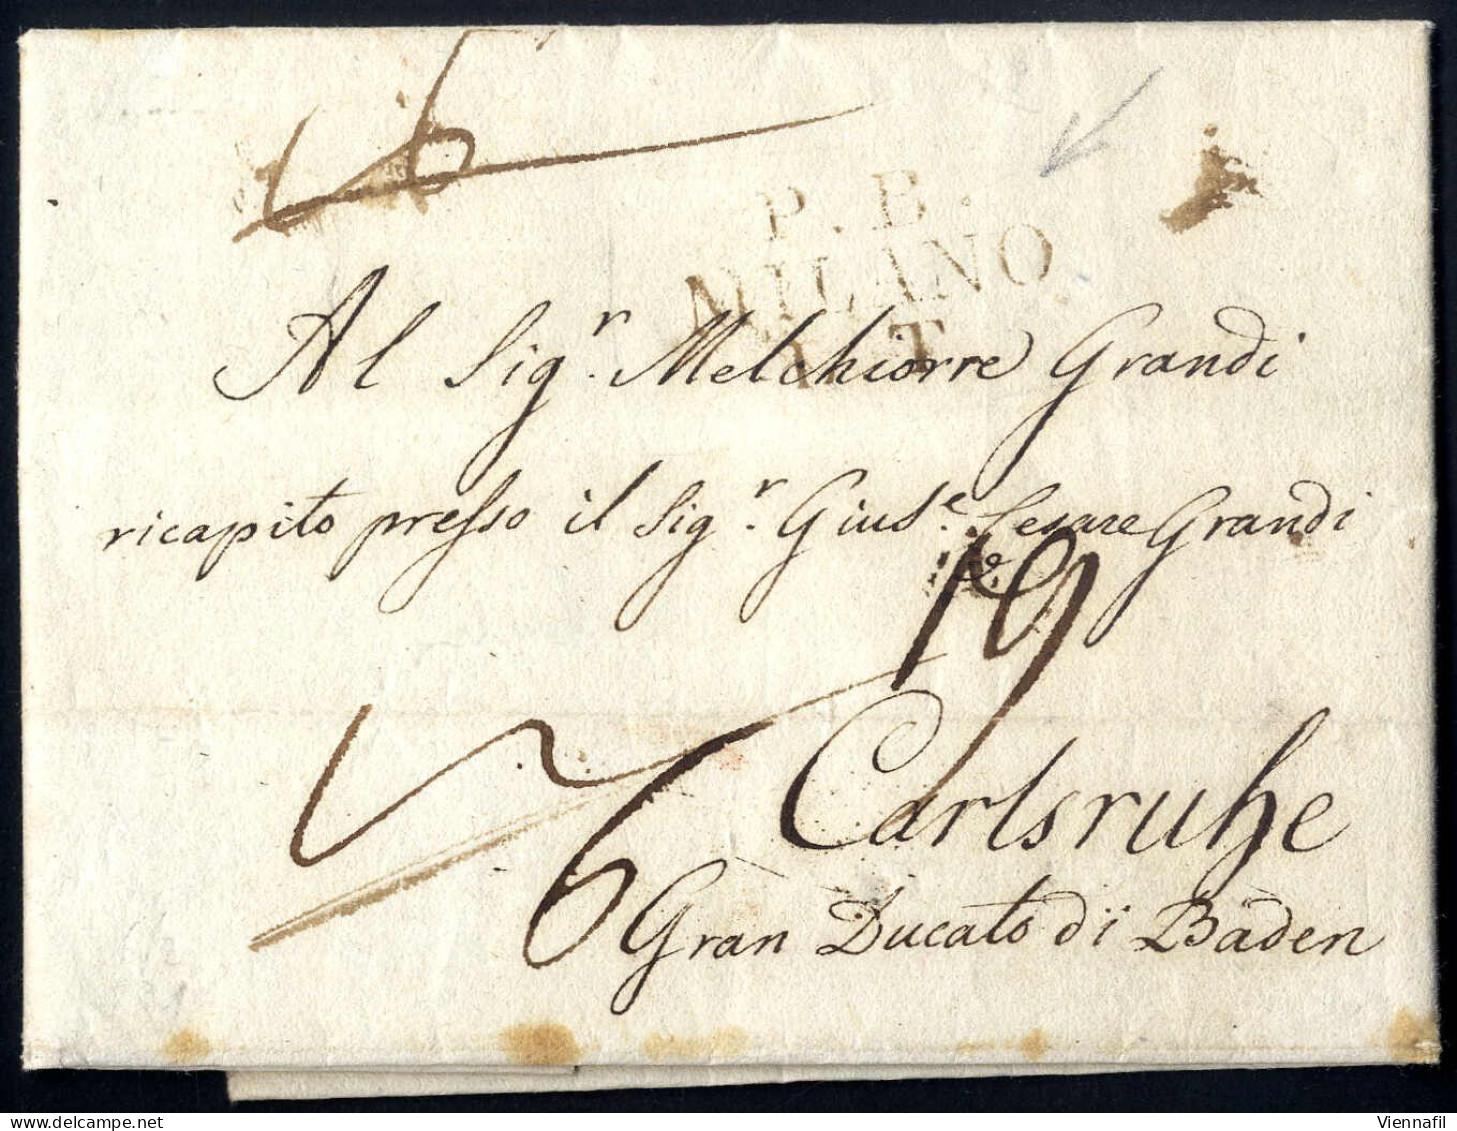 6
P. B.
MILANO
Al Sig.r Melchiorre Grandi
ricapito presso il Sig.r Gius.e Cesare Grandi
19
6
Carlsruhe
Gran Ducato di Baden
Viennafil